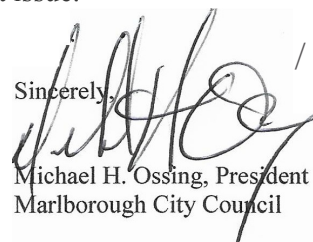 t issue.
Sincerely,
Michael H. Ossing, President
Marlborough City Council